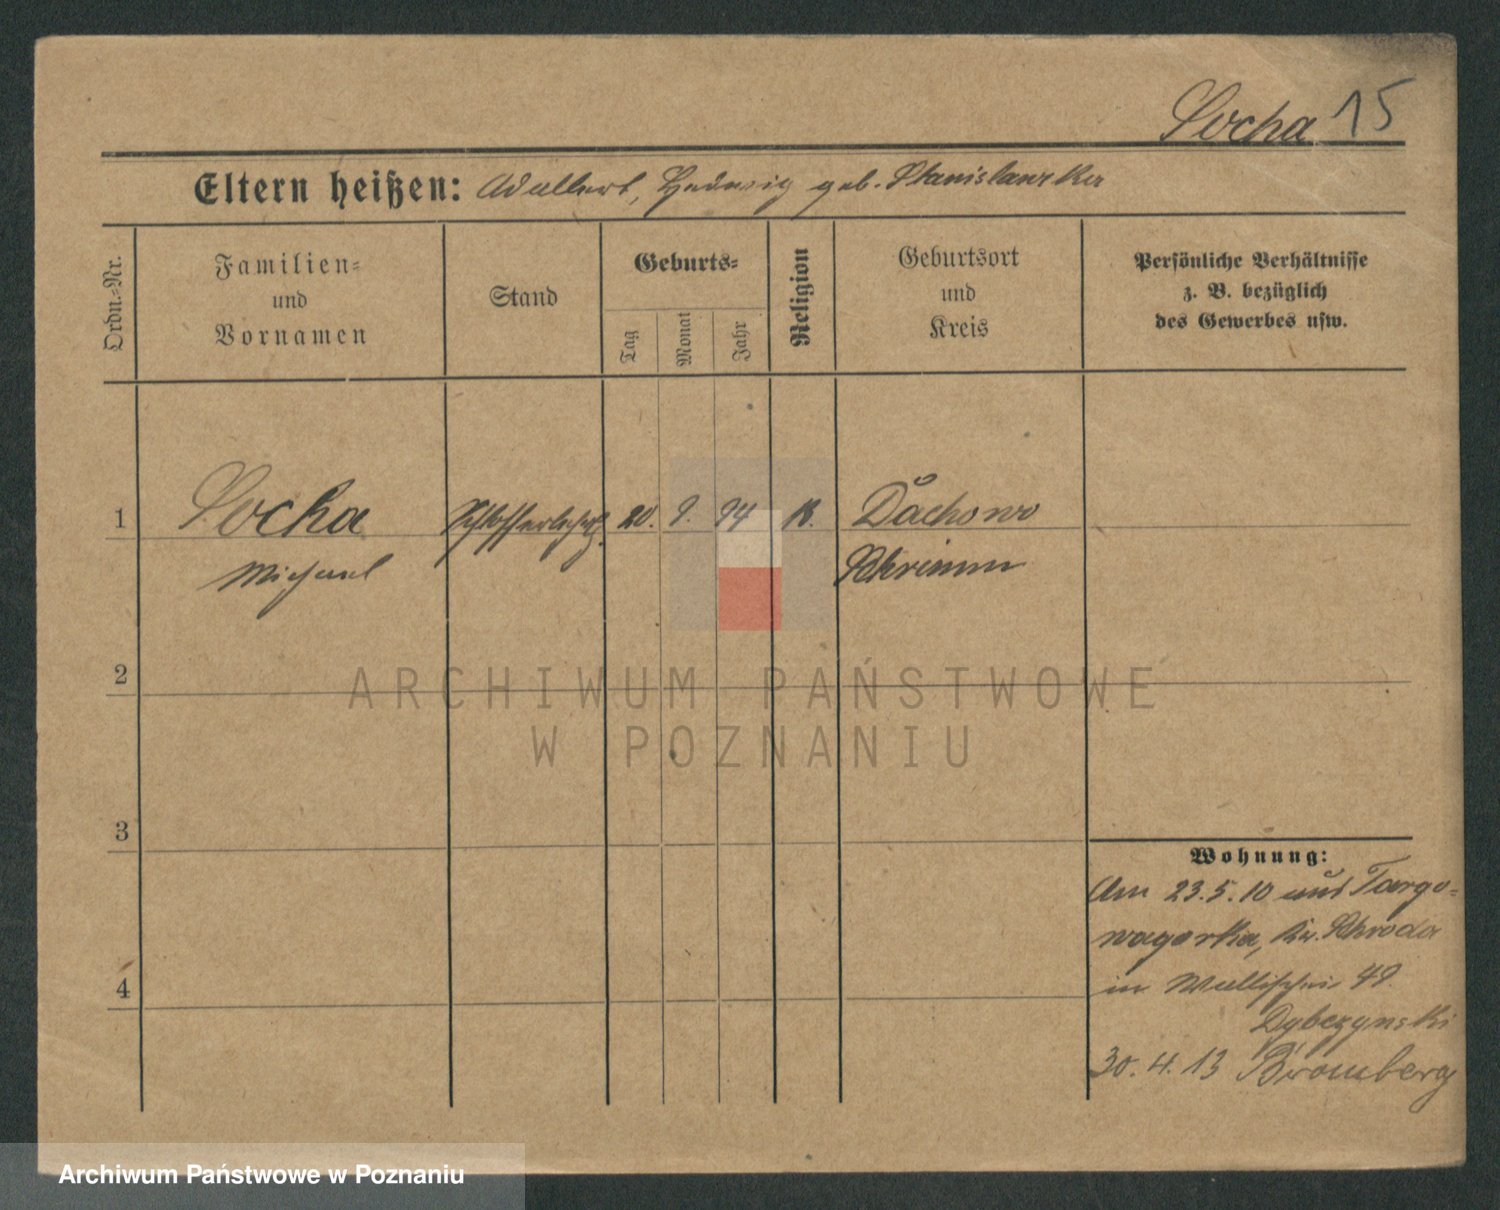 Socha 15
Eltern heißen: Adalbert, Hedwig geb. Stanislawska
Ordn.-Nr.
Familien-
und
Vornamen
Stand
Geburts-
Tag
Monat
Jahr
Religion
Geburtsort
und
Kreis
Persönliche Verhältnisse
z. B. bezüglich
des Gewerbes usw.
1
Socha
Michael
Schlosserlehrlg.
20. 9. 94
K.
Dachowo
Schrimm
2
3
4
Wohnung:
Am 23.5.10 aus Targo-
wagorka, Kr. Schroda
in Wallischei 49.
30.4.13 Bromberg
ARCHIWUM PAŃSTWOWE
W POZNANIU
Archiwum Państwowe w Poznaniu